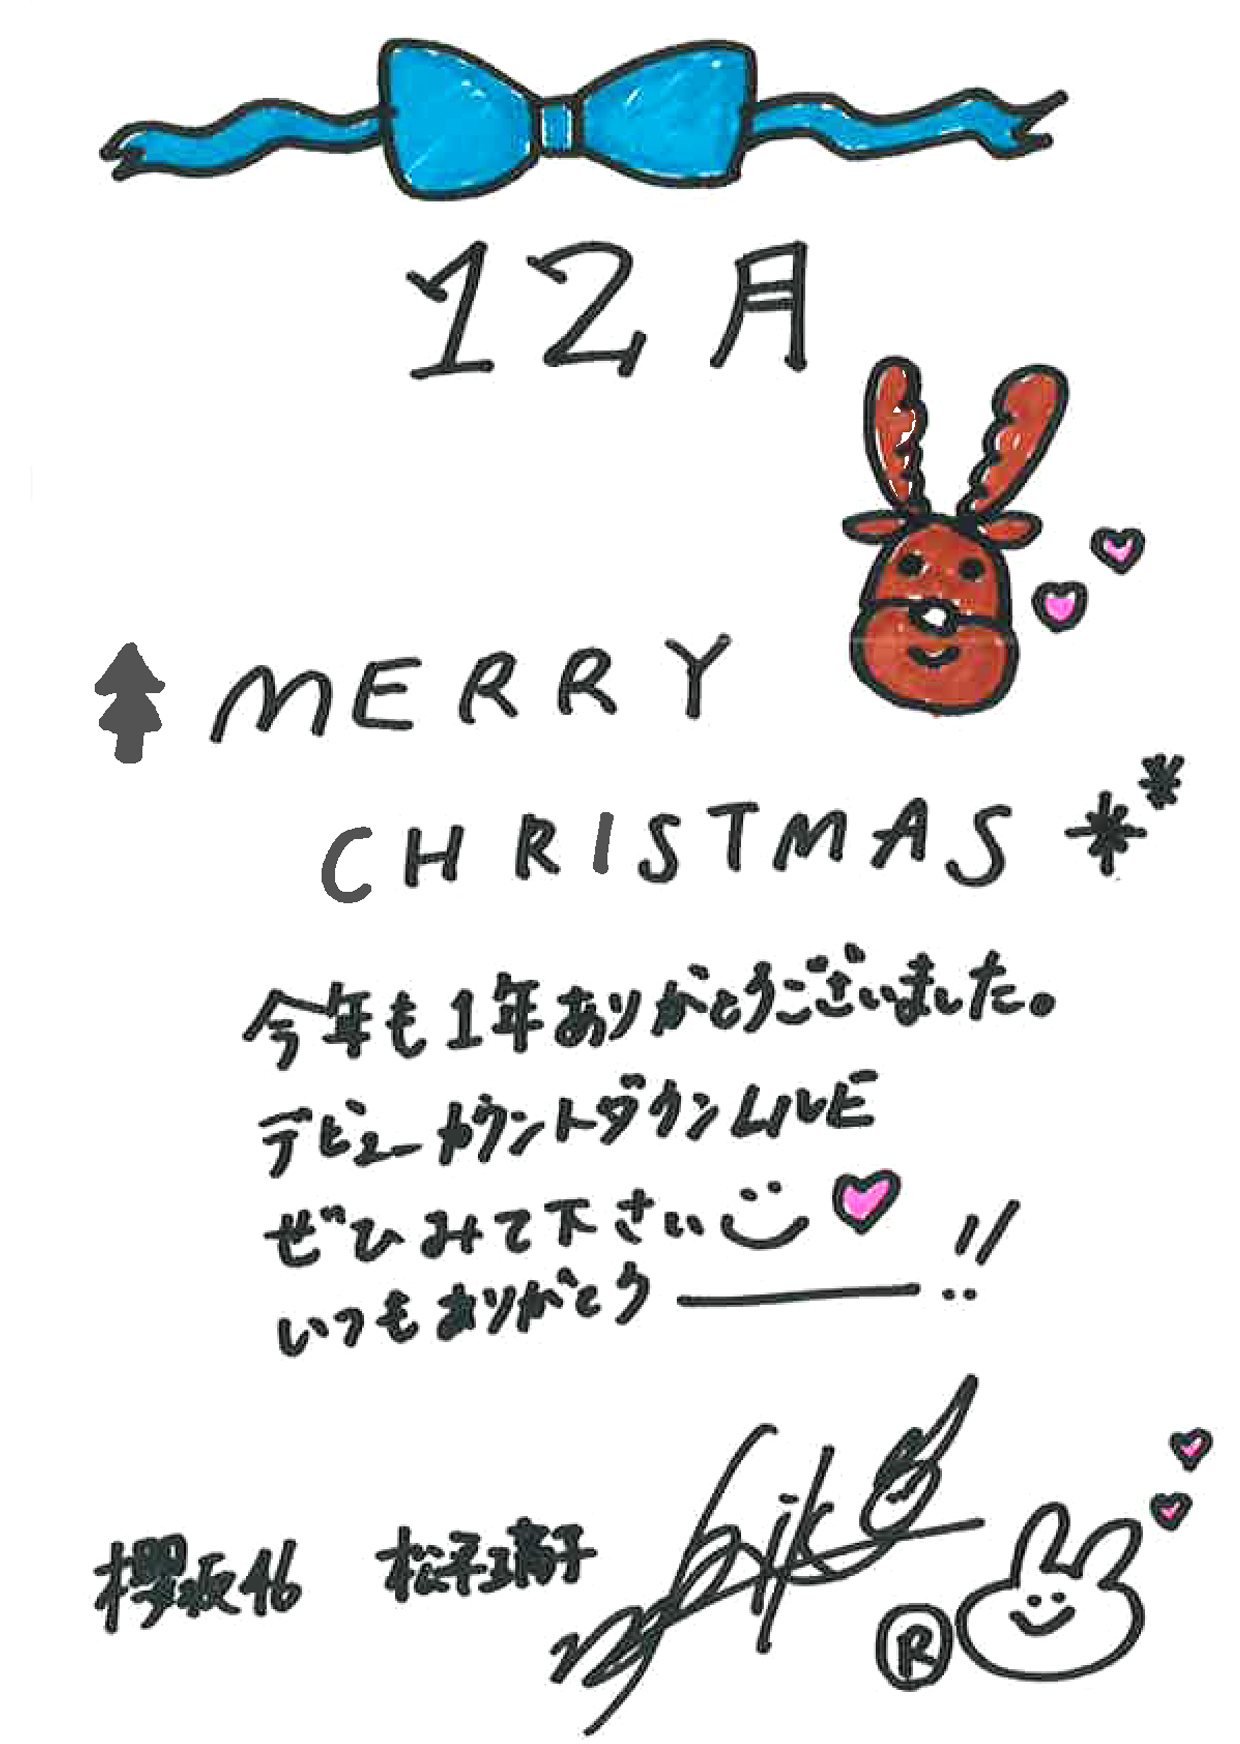 12月
MERRY
CHRISTMAS
今年も1年ありがとうございました。
デビューカウントダウンLIVE
ぜひみて下さい
いつもありがとう———!!
櫻坂46 松平璃子
R